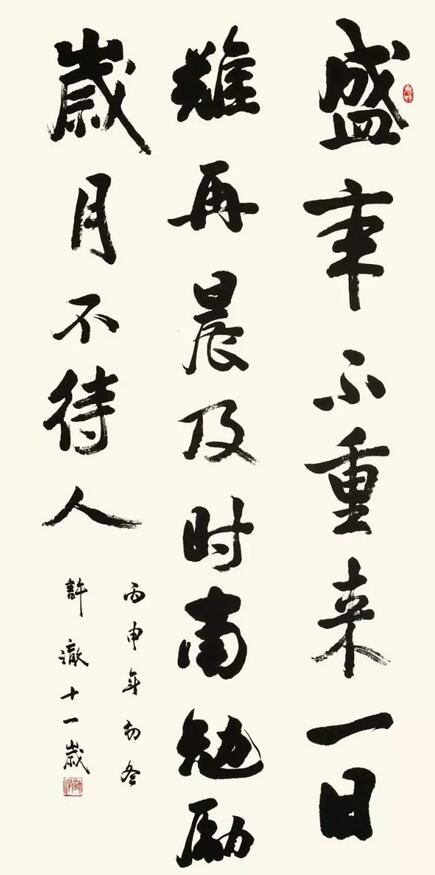 盛年不重来一日
難再晨及时當勉励
歲月不待人
丙申年初冬
許澈十一歲